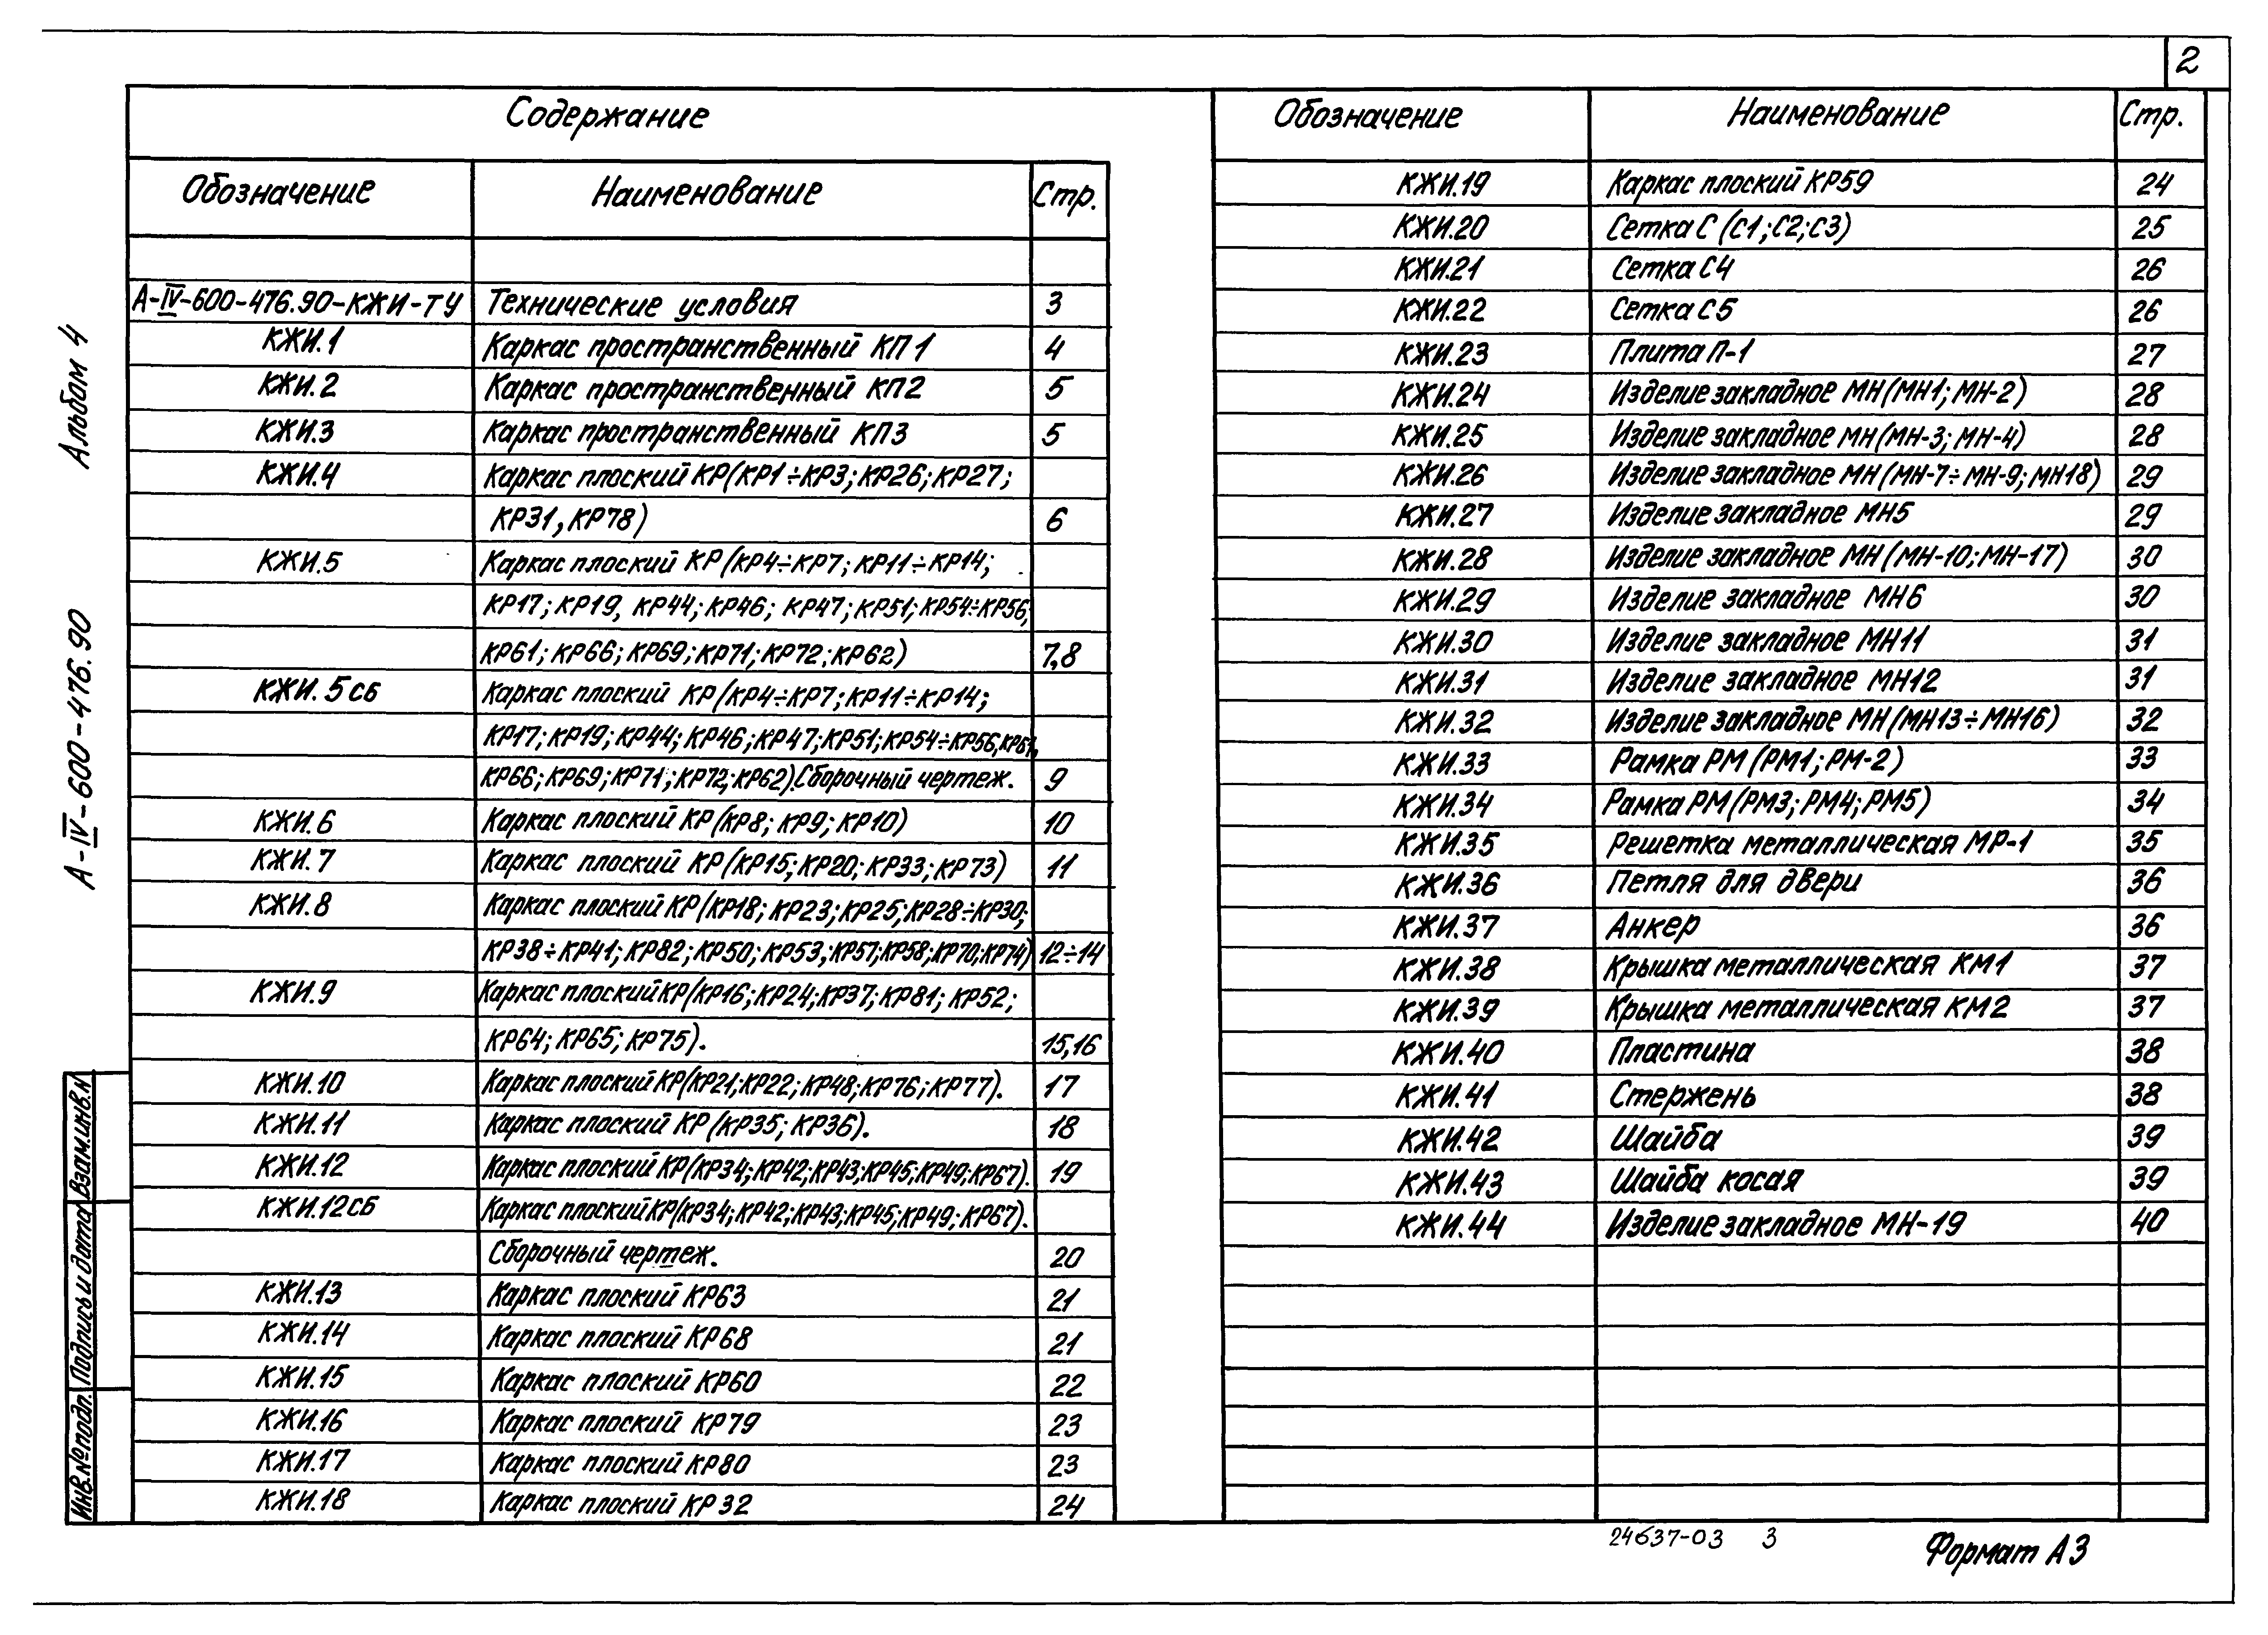 2
Содержание
Обозначение Наименование Стр.
А-IV-600-476.90-КЖИ-ТУ Технические условия 3
КЖИ.1 Каркас пространственный КП1 4
КЖИ.2 Каркас пространственный КП2 5
КЖИ.3 Каркас пространственный КП3 5
КЖИ.4 Каркас плоский КР(КР1÷КР3; КР26; КР27;
КР31, КР78) 6
КЖИ.5 Каркас плоский КР(КР4÷КР7; КР11÷КР14;
КР17; КР19, КР44; КР46; КР47; КР51; КР54÷КР56;
КР61; КР66; КР69; КР71; КР72; КР62) 7,8
КЖИ. 5сб Каркас плоский КР(КР4÷КР7; КР11÷КР14;
КР17; КР19; КР44; КР46; КР47; КР51; КР54÷КР56, КР61,
КР66; КР69; КР71; КР72; КР62). Сборочный чертеж. 9
КЖИ.6 Каркас плоский КР(КР8; КР9; КР10) 10
КЖИ.7 Каркас плоский КР(КР15; КР20; КР33; КР73) 11
КЖИ.8 Каркас плоский КР(КР18; КР23; КР25; КР28÷КР30;
КР38÷КР41; КР82; КР50; КР53; КР57; КР58; КР70; КР74) 12÷14
КЖИ.9 Каркас плоский КР(КР16; КР24; КР37; КР81; КР52;
КР64; КР65; КР75). 15,16
КЖИ.10 Каркас плоский КР(КР21; КР22; КР48; КР76; КР77). 17
КЖИ.11 Каркас плоский КР(КР35; КР36). 18
КЖИ.12 Каркас плоский КР(КР34; КР42; КР43; КР45; КР49; КР67). 19
КЖИ.12сб Каркас плоский КР(КР34; КР42; КР43; КР45; КР49; КР67).
Сборочный чертеж. 20
КЖИ.13 Каркас плоский КР63 21
КЖИ.14 Каркас плоский КР68 21
КЖИ.15 Каркас плоский КР60 22
КЖИ.16 Каркас плоский КР79 23
КЖИ.17 Каркас плоский КР80 23
КЖИ.18 Каркас плоский КР32 24
Обозначение Наименование Стр.
КЖИ.19 Каркас плоский КР59 24
КЖИ.20 Сетка С (С1; С2; С3) 25
КЖИ.21 Сетка С4 26
КЖИ.22 Сетка С5 26
КЖИ.23 Плита П-1 27
КЖИ.24 Изделие закладное МН(МН1; МН-2) 28
КЖИ.25 Изделие закладное МН(МН-3; МН-4) 28
КЖИ.26 Изделие закладное МН(МН-7÷МН-9; МН18) 29
КЖИ.27 Изделие закладное МН5 29
КЖИ.28 Изделие закладное МН(МН-10; МН-17) 30
КЖИ.29 Изделие закладное МН6 30
КЖИ.30 Изделие закладное МН11 31
КЖИ.31 Изделие закладное МН12 31
КЖИ.32 Изделие закладное МН(МН13÷МН16) 32
КЖИ.33 Рамка РМ(РМ1; РМ-2) 33
КЖИ.34 Рамка РМ(РМ3; РМ4; РМ5) 34
КЖИ.35 Решетка металлическая МР-1 35
КЖИ.36 Петля для двери 36
КЖИ.37 Анкер 36
КЖИ.38 Крышка металлическая КМ1 37
КЖИ.39 Крышка металлическая КМ2 37
КЖИ.40 Пластина 38
КЖИ.41 Стержень 38
КЖИ.42 Шайба 39
КЖИ.43 Шайба косая 39
КЖИ.44 Изделие закладное МН-19 40
Альбом 4
А-IV-600-476.90
Взам.инв.N
Подпись и дата
Инв.№подл.
24637-03 3
Формат А3